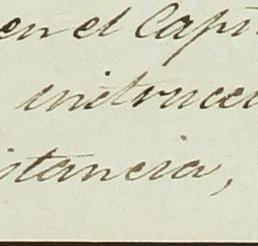 en el Capi
instrucci
istancia,